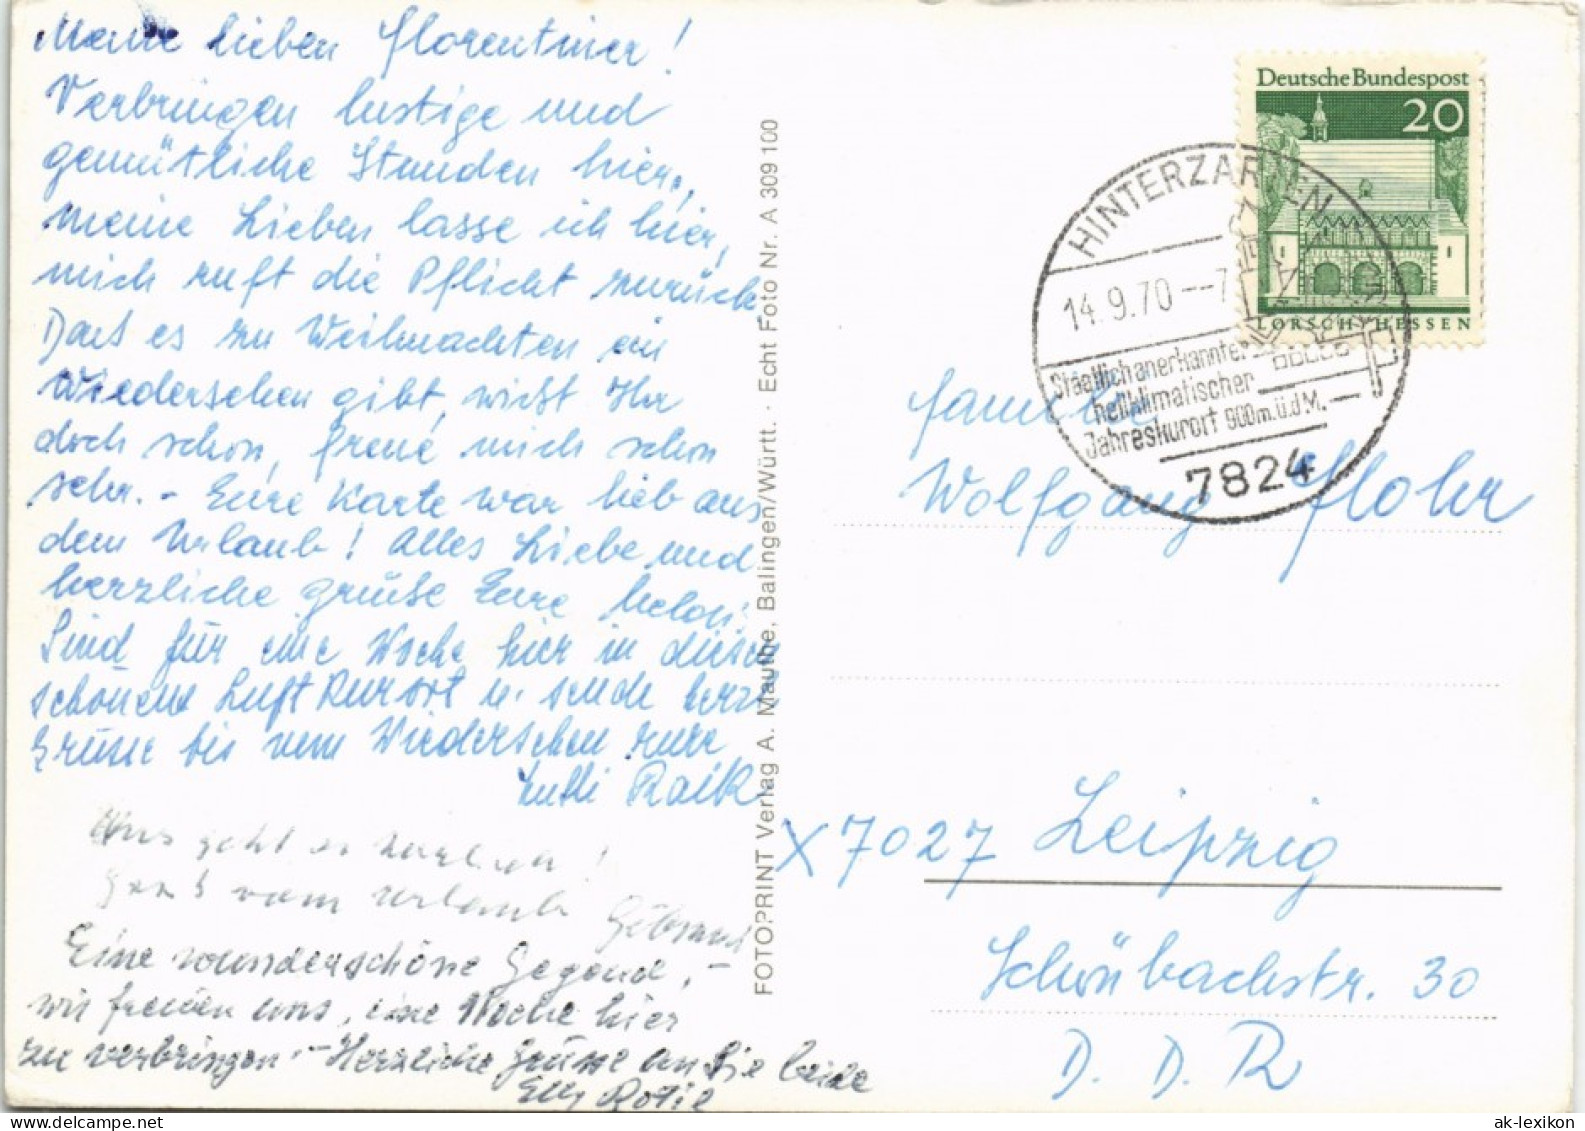 Meine lieben Florentiner!
Verbringen lustige und
gemütliche Stunden hier,
meine Lieben lasse ich hier,
mich ruft die Pflicht zurück.
Daß es zu Weihnachten ein
Wiedersehen gibt, wißt Ihr
doch schon, freue mich schon
sehr. - Eure Karte war lieb aus
dem Urlaub! Alles Liebe und
herzliche Grüße Eure
Sind für eine Woche hier in diesem
schönem Luft Kurort u. sende herzl.
Grüsse bis zum Wiedersehen
Raik
Uns geht es
vom Urlaub
Eine wunderschöne Gegend, -
wir freuen uns, eine Woche hier
zu verbringen. - Herzliche Grüsse an Sie beide
Elly
FOTOPRINT Verlag A. Mauthe, Balingen/Württ. · Echt Foto Nr. A 309 100
Deutsche Bundespost
20
LORSCH/HESSEN
HINTERZARTEN
14.9.70--7
Staatlich anerkannter
heilklimatischer
Jahreskurort 900m.ü.d.M.
7824
Familie
Wolfgang Flohr
X 7027 Leipzig
Schönbachstr. 30
D. D. R
ak-lexikon